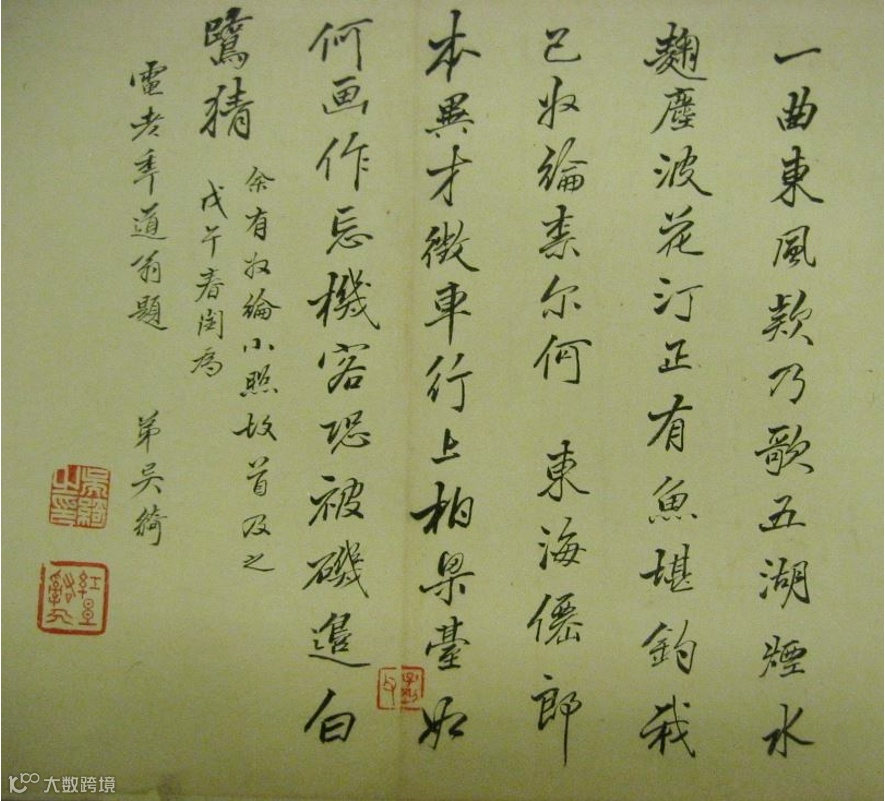 一曲東風欵乃歌五湖煙水
麹塵波花汀正有魚堪釣我
已收綸柰尔何 東海僊郎
本異才徵車行上柏梁臺如
何画作忘機客恐被磯邊白
鷺猜
余有收綸小照故首及之
戊午春閏為
電老年道翁題 弟吳綺
吳綺之印
大数跨境